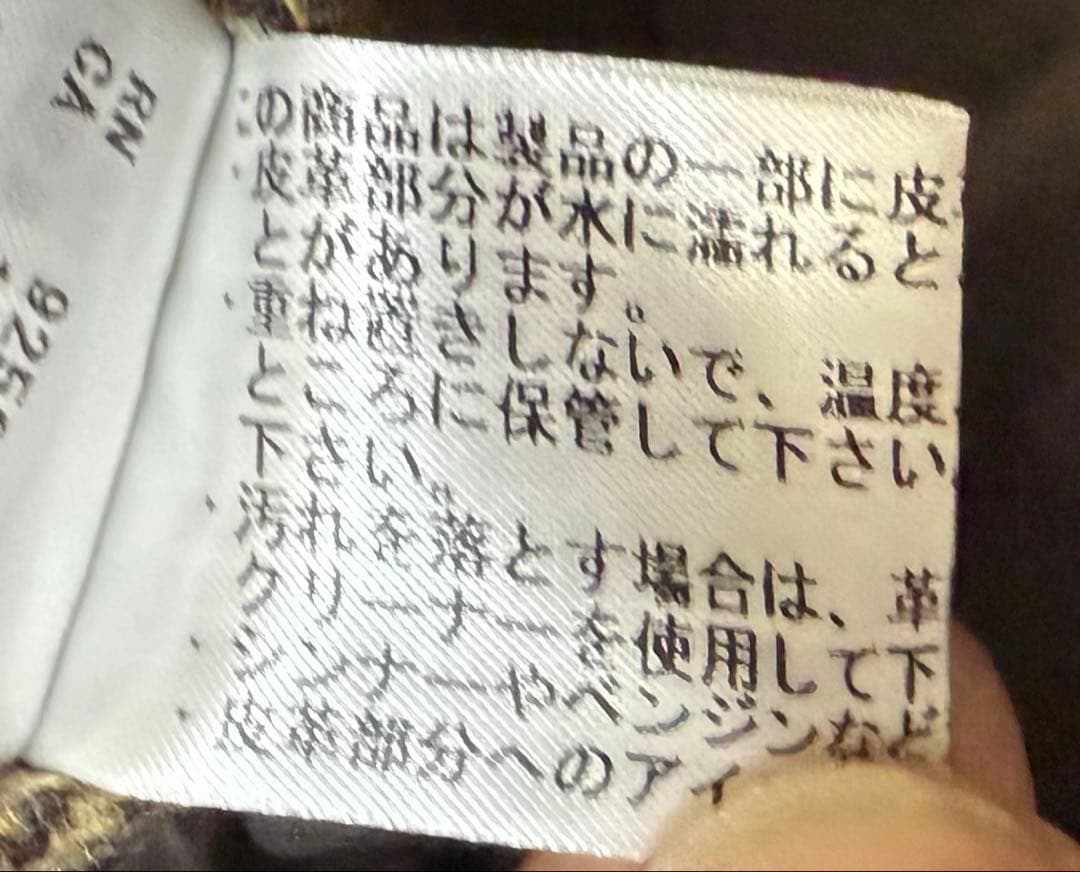 RN
CA
925
この商品は製品の一部に皮
・皮革部分が水に濡れると
とがあります。
・重ね置きしないで、温度
ところに保管して下さい
下さい。
・汚れを落とす場合は、革
クリーナーを使用して下
・シンナーやベンジンなど
・皮革部分へのアイ